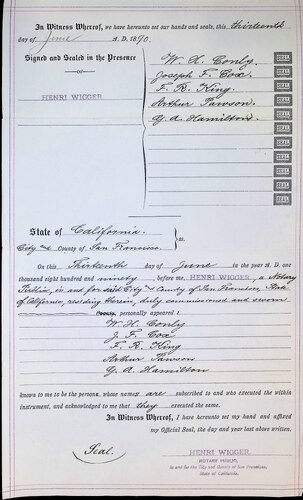 In Witness Whereof, we have hereunto set our hands and seals, this thirteenth
day of June A. D. 1890.
Signed and Sealed in the Presence
HENRI WIGGER
W. H. Conly
Joseph F. Cox
F. R. King
Arthur Pawson
G. A. Hamilton.
State of California.
City and County of San Francisco.
ss.
On this Thirteenth day of June in the year A. D. one
thousand eight hundred and ninety before me, HENRI WIGGER, a Notary
Public, in and for said City and County of San Francisco, State
of California, residing therein, duly commissioned and sworn
personally appeared
W. H. Conly
J. F. Cox
F. R. King
Arthur Pawson
G. A. Hamilton
known to me to be the persons, whose names are subscribed to and who executed the within
instrument, and acknowledged to me that they executed the same.
In Witness Whereof, I have hereunto set my hand and affixed
my Official Seal, the day and year last above written.
Seal.
HENRI WIGGER
NOTARY PUBLIC,
In and for the City and County of San Francisco,
State of California.